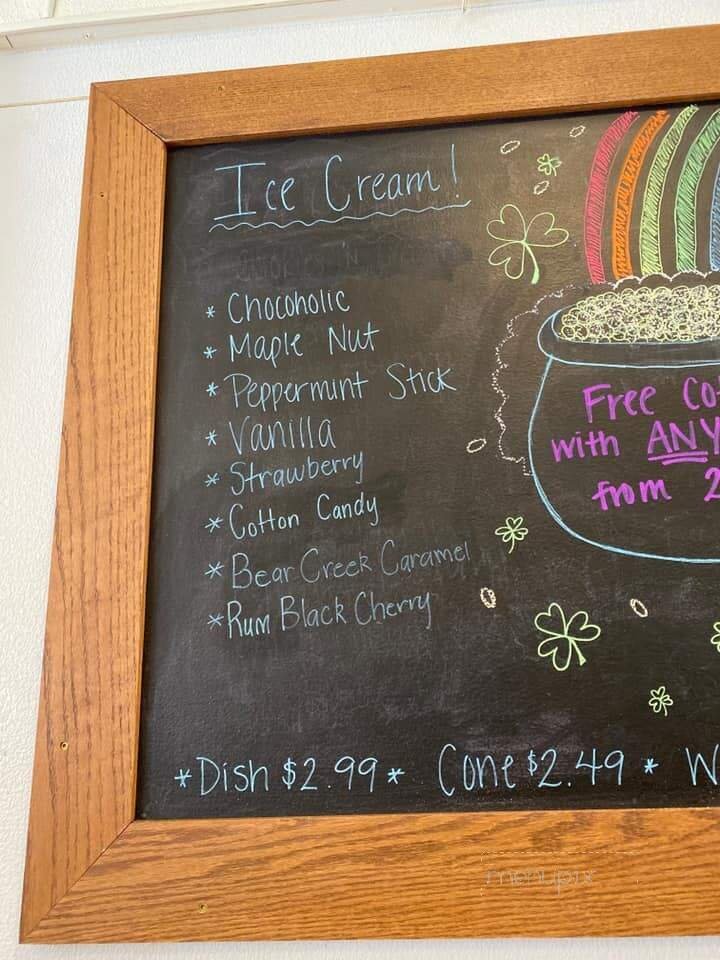 Ice Cream!
* Chocoholic
* Maple Nut
* Peppermint Stick
* Vanilla
* Strawberry
* Cotton Candy
* Bear Creek Caramel
* Rum Black Cherry
Free Co
with ANY
from 2
*Dish $2.99* Cone $2.49 * W
menupix